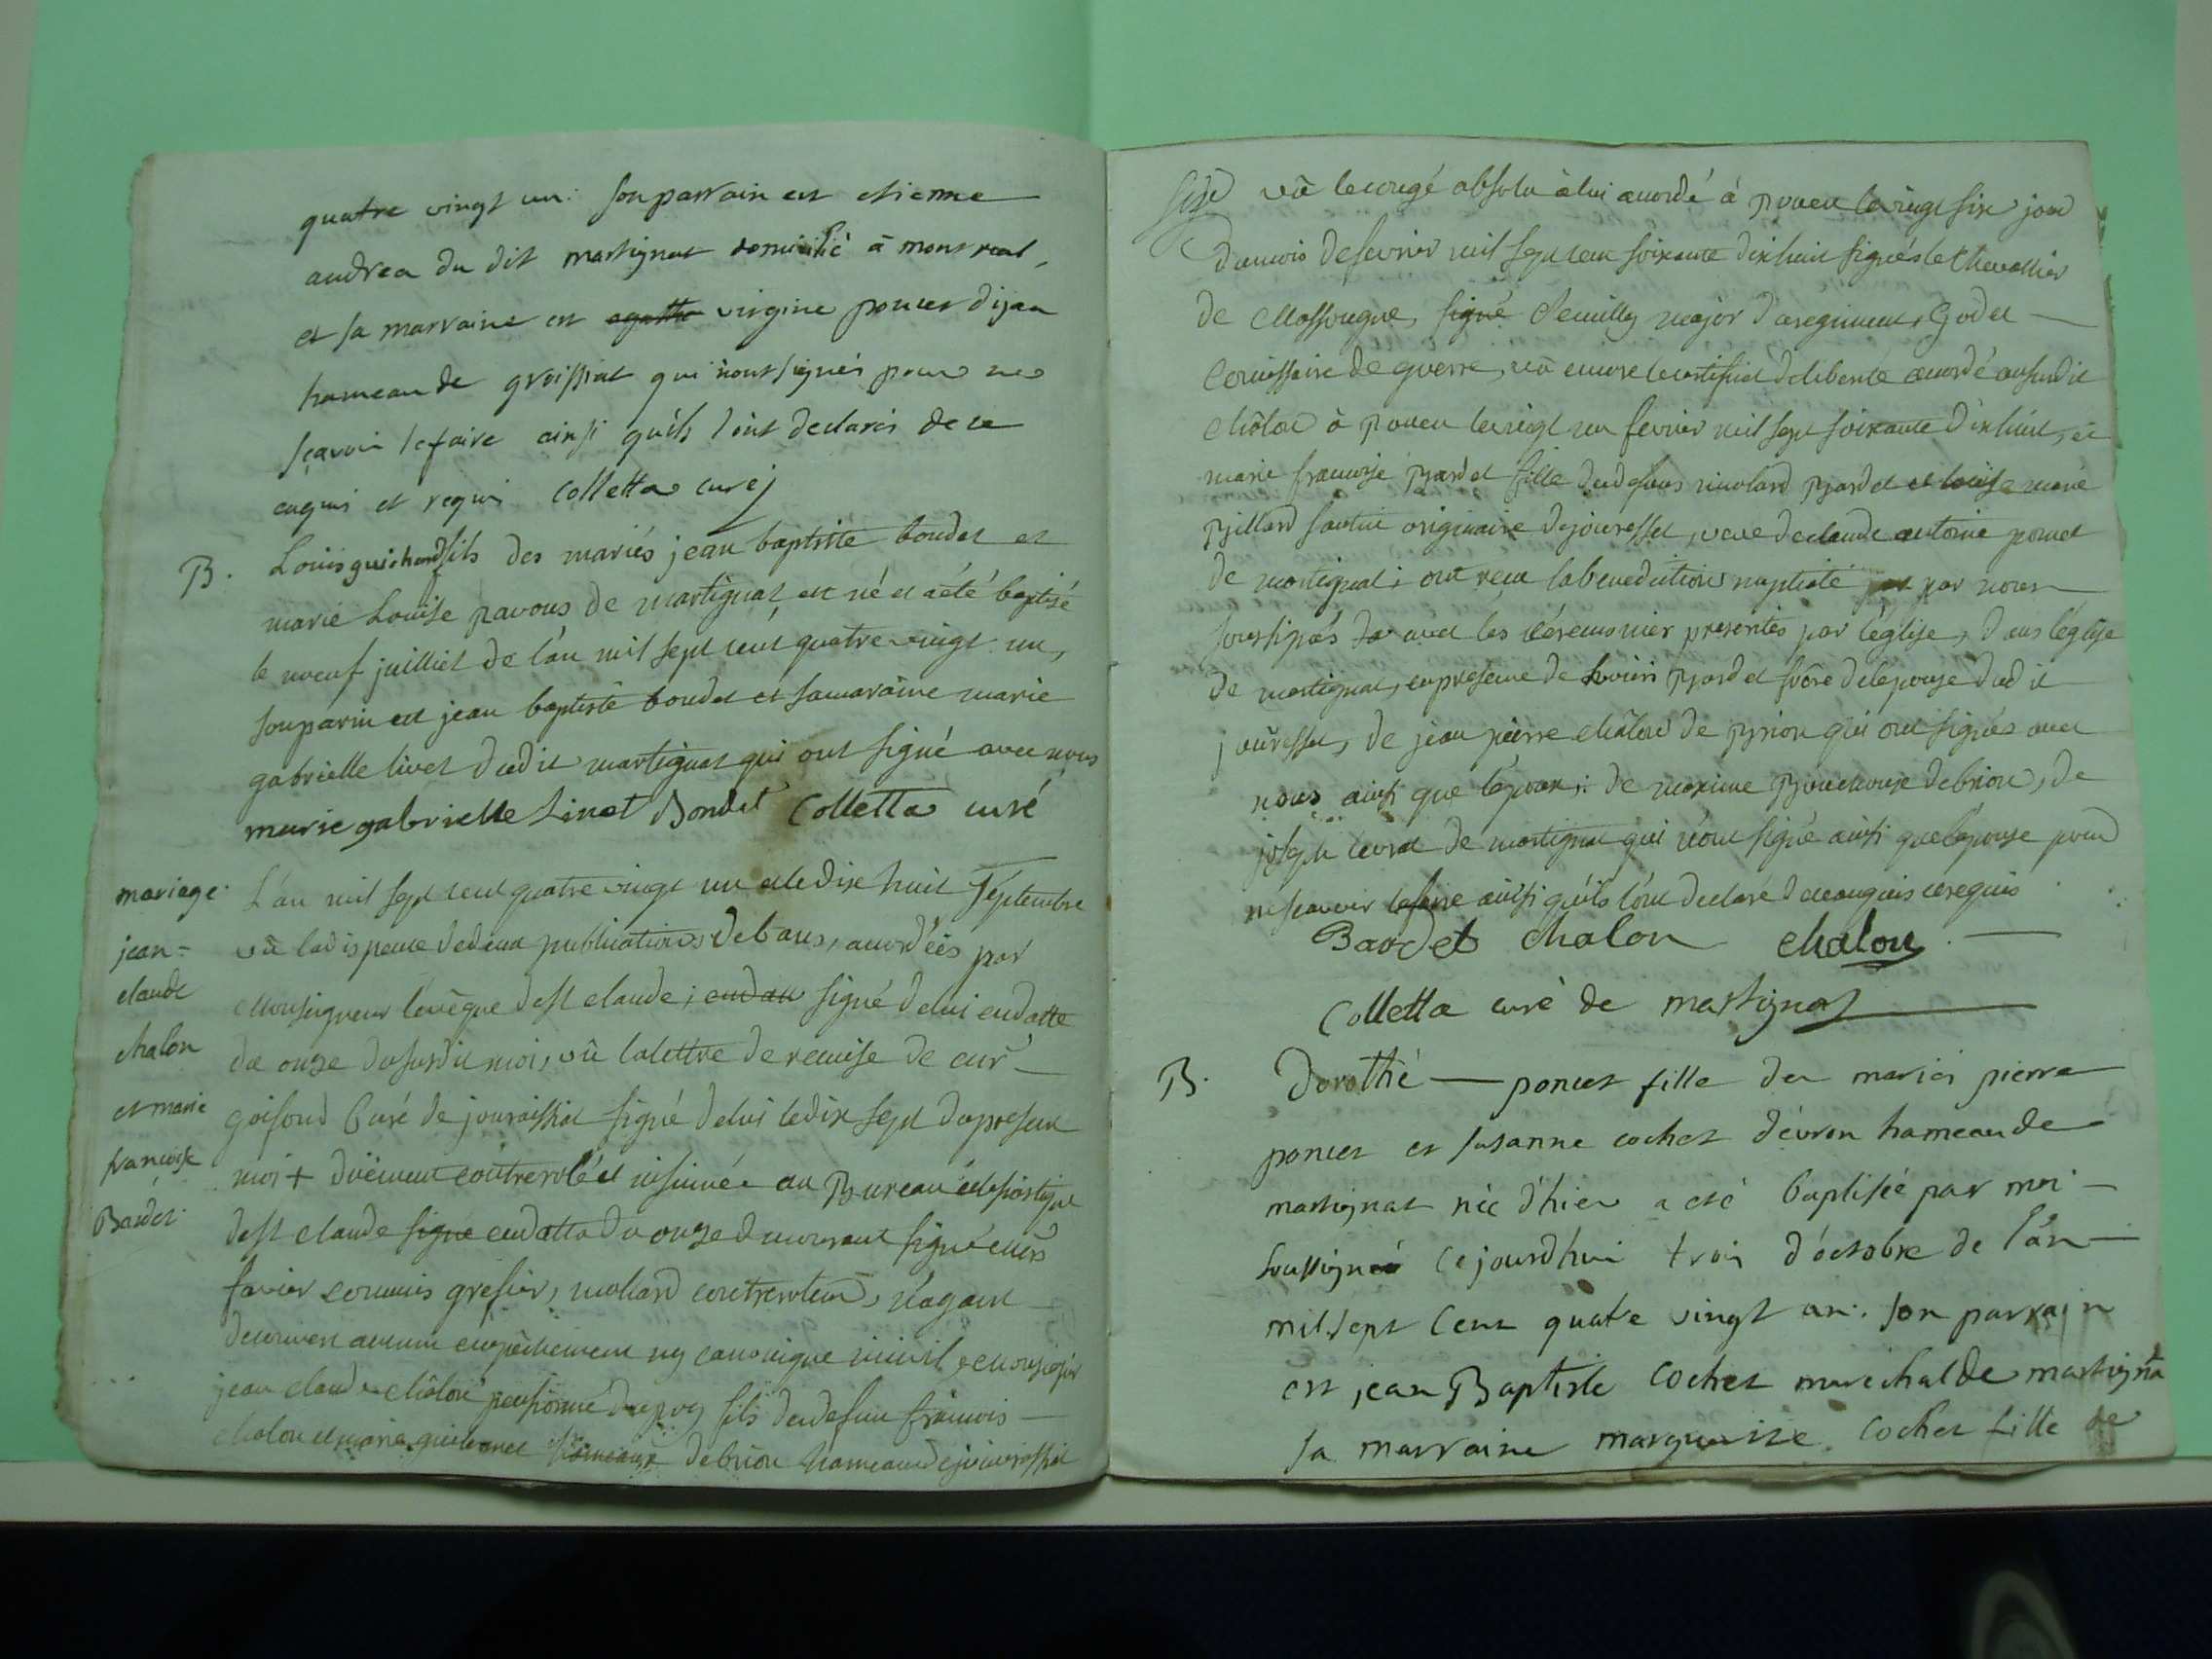 quatre vingt un. son parrain est etienne
andrea du dit martignat domicilié à montreal,
et sa marraine est agatte virgine poncet dijan
hameau de groissiat qui n'ont signés pour ne
sçavoir le faire ainsi qu'ils l'ont declarés de ce
enquis et requis Colletta curé
B. Louis guichard fils des mariés jean baptiste boudet et
marie Louise pavous de martignat est né et a été baptisé
le noeuf juilliet de l'an mil sept cent quatre vingt un,
son parin est jean baptiste boudet et sa maraine marie
gabrielle livet dudit martignat qui ont signé avec nous
marie gabrielle Linet Bondet Colletta curé
mariage
jean=
claude
chalon
et marie
francoise
Bardet
L'an mil sept cent quatre vingt un et le dix huit septembre
vû la dispence de deux publications de bans, accordées par
Monseigneur l'évêque de st claude; en dau signé de lui en datte
du onze du susdit moi, vû la lettre de remise de
curé de jouraissiat signé de lui le dix sept du present
moi + duëment controrolé et insinuée au Bureau
de st claude signé en datte du onze du courant signé
favier commis grefier, moliard controroleur, n'ayant
decouvert aucun empêchement ny canonique ni civil,
jean claude châlon pensionné du roy fils du defun francois
chalon et marie hameaux de brion hameau de jouraissiat
vû le congé absolu à lui accordé à Rouen le vingt six jour
du mois de fevrier mil sept cent soixante dix huit signés le Chevallier
de Massougne, signé major du regiment, Godet
Comissaire de guerre, vû encore le certificat deliberé accordé au susdit
châlon à Rouen le vingt un fevrier mil sept soixante dix huit, et
marie francoise Bardet fille du defunt Bardet et louise marie
originaire de jouresset, veve de claude antoine poncet
de martignat; ont reçu la benediction nuptiale par nous
soussignés avec les céremonies presentés par l'église, dans l'église
de martignat, en presence de Bardet frère de l'épouse dudit
jouresset, de jean pierre châlon de Brion qui ont signés avec
nous ainsi que l'époux; de maxime de brion, de
joseph de martignat qui n'ont signé ainsi que l'epouse pour
ne scavoir le faire ainsi qu'ils l'ont declaré de ce enquis et requis
Bardet Chalon chalon
Colletta curé de martignat
B. Dorothé — poncet fille des mariés pierre
poncet et susanne cochet d'évron hameau de
martignat née d'hier a eté baptisée par moi
soussigné cejourdhui trois d'octobre de l'an
mil sept cent quatre vingt un. son parrain
est jean Baptiste Cochet marechal de martignat
sa marraine marguerite Cochet fille de